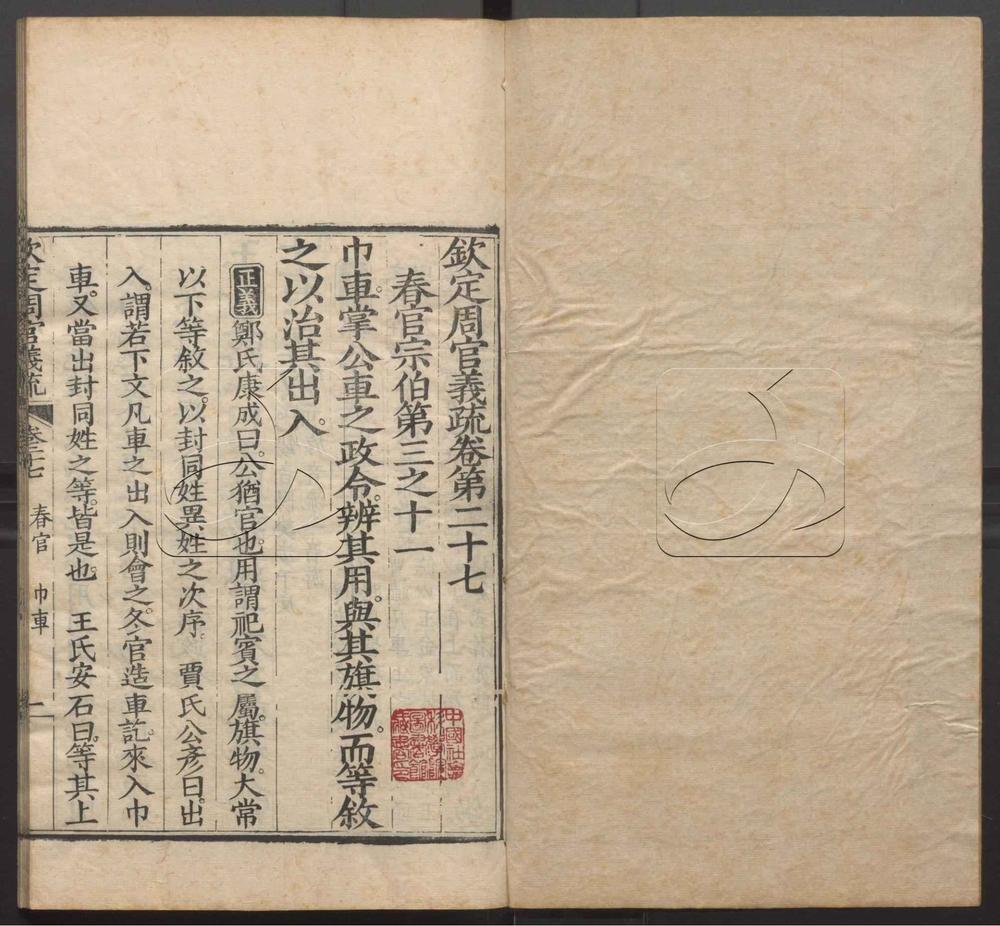 欽定周官義疏卷第二十七
春官宗伯第三之十一
巾車掌公車之政令。辨其用。與其旗物。而等敘
之以治其出入。
正義 鄭氏康成曰。公猶官也。用謂祀賓之屬。旗物。大常
以下等敘之。以封同姓異姓之次序。 賈氏公彥曰。出
入。謂若下文凡車之出入則會之。冬官造車訖。來入巾
車。又當出封同姓之等。皆是也。 王氏安石曰。等其上
欽定周官義疏 卷二十七 春官 巾車 一
中國社會科學院圖書館藏書印